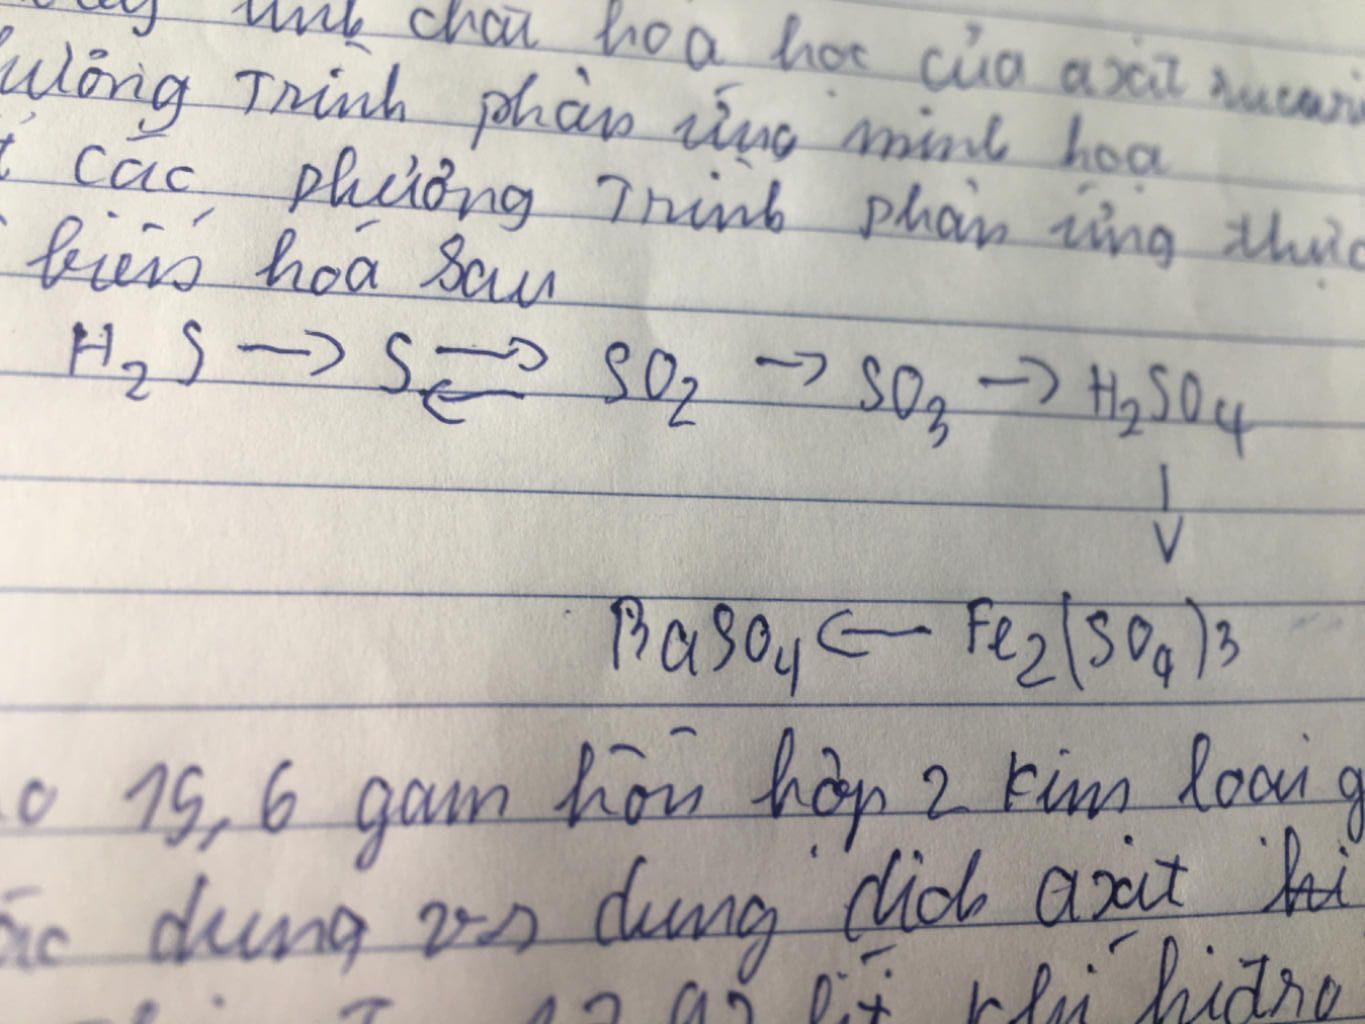 chất hoá học của axit
trình phản ứng minh hoạ
các phương trình phản ứng
biến hoá sau
H₂S → S ⇄ SO₂ → SO₃ → H₂SO₄
↓
BaSO₄ ← Fe₂(SO₄)3
15,6 gam hỗn hợp 2 kim loại
dung vs dung dịch axit
khí hiđro